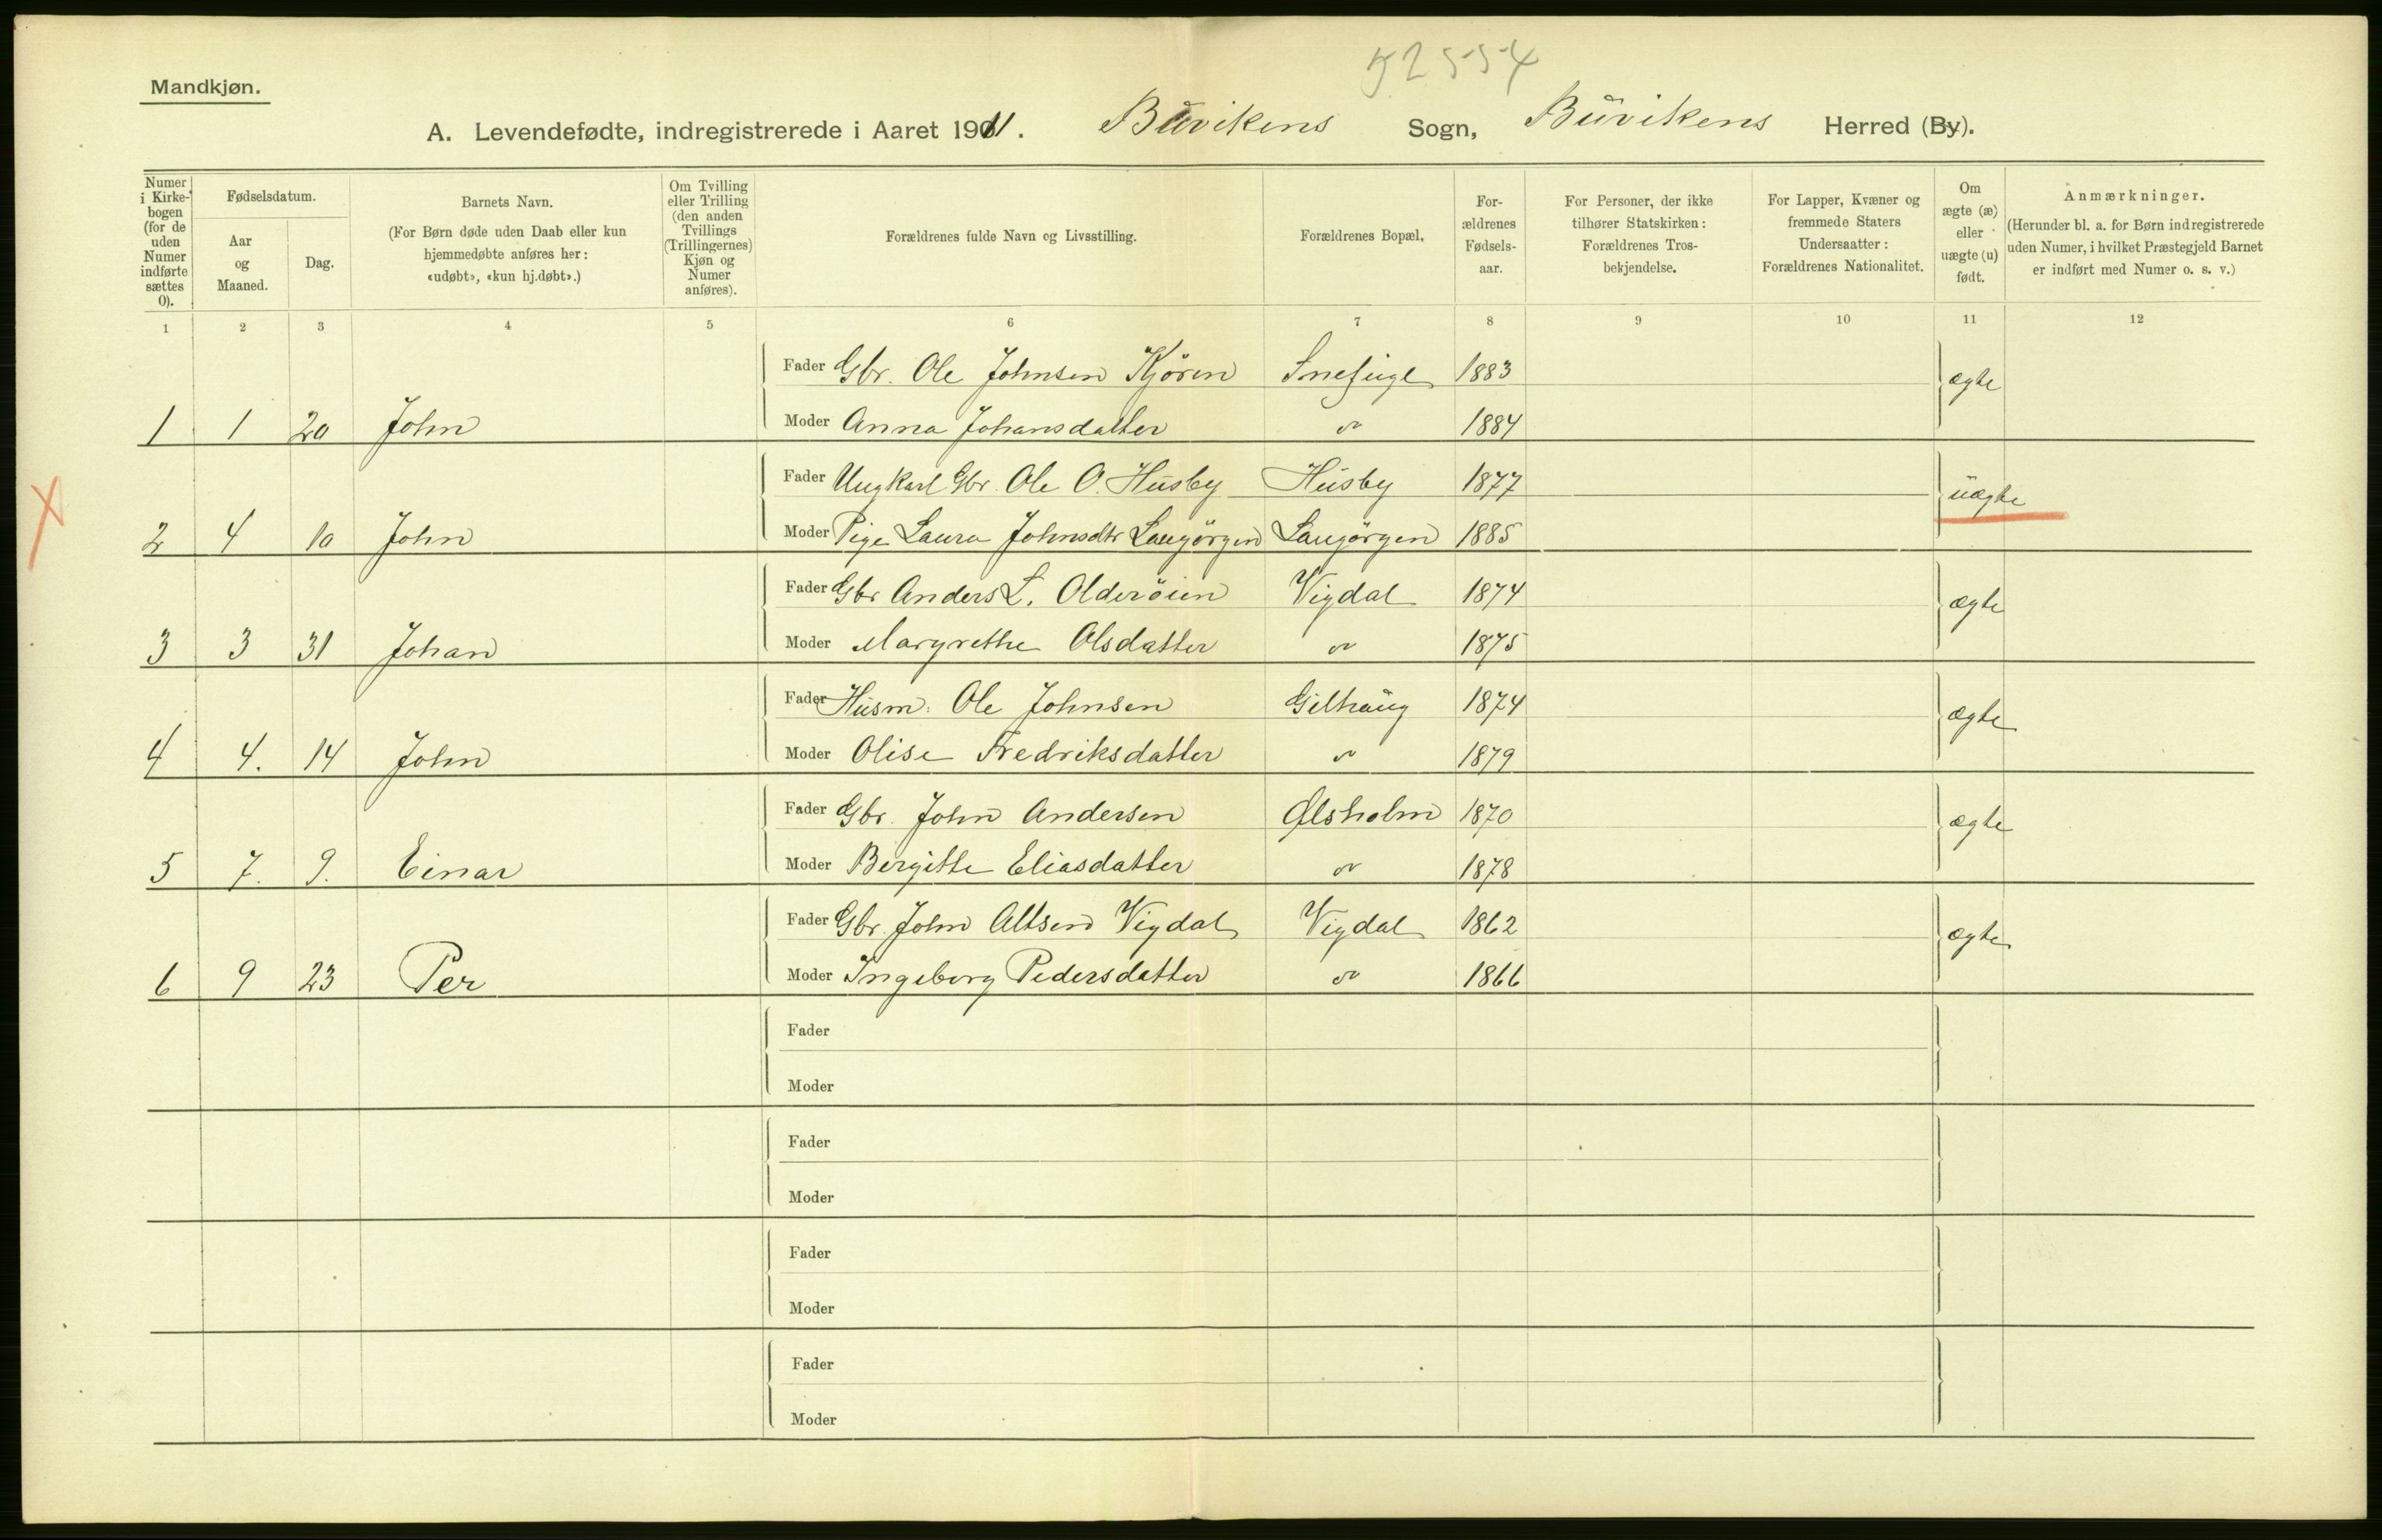 52554
Mandkjøn.
A. Levendefødte, indregistrerede i Aaret 1911. Buvikens Sogn, Buvikens Herred (By).
Numer i Kirkebogen (for de uden Numer indførte sættes 0).
Fødselsdatum.
Aar og Maaned.
Dag.
Barnets Navn.
(For Børn døde uden Daab eller kun hjemmedøbte anføres her: «udøbt», «kun hj.døbt».)
Om Tvilling eller Trilling (den anden Tvillings (Trillingernes) Kjøn og Numer anføres).
Forældrenes fulde Navn og Livsstilling.
Forældrenes Bopæl,
For-ældrenes Fødsels-aar.
For Personer, der ikke tilhører Statskirken: Forældrenes Tros-bekjendelse.
For Lapper, Kvæner og fremmede Staters Undersaatter: Forældrenes Nationalitet.
Om ægte (æ) eller uægte (u) født.
Anmærkninger.
(Herunder bl. a. for Børn indregistrerede uden Numer, i hvilket Præstegjeld Barnet er indført med Numer o. s. v.)
1 2 3 4 5 6 7 8 9 10 11 12
Fader Gbr. Ole Johnsen Kjören Snefugl 1883 ægte
1 1 20 John Moder Anna Johansdatter " 1884
Fader Ungkarl Gbr. Ole O. Husby Husby 1877 uægte
X
2 4 10 John Moder Pige Laura Johnsdtr Langörgen Langörgen 1885
Fader Gbr Anders L. Olderöien Vigdal 1874 ægte
3 3 31 Johan Moder Margrethe Olsdatter " 1875
Fader Husm: Ole Johnsen Gilhaug 1874 ægte
4 4. 14 John Moder Olise Fredriksdatter " 1879
Fader Gbr. John Andersen Ølsholm 1870 ægte
5 7. 9. Einar Moder Bergitte Eliasdatter " 1878
Fader Gbr. John Altsen Vigdal Vigdal 1862 ægte
6 9 23 Per Moder Ingeborg Pedersdatter " 1866
Fader
Moder
Fader
Moder
Fader
Moder
Fader
Moder